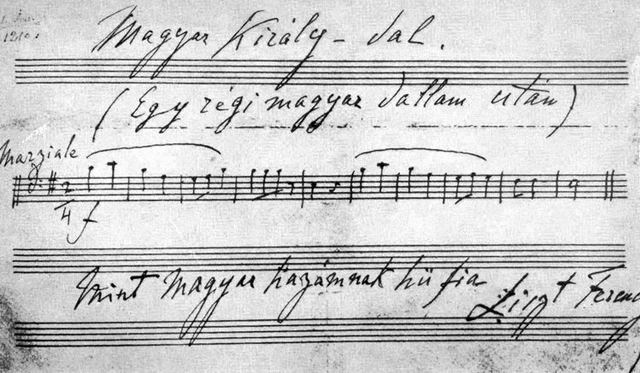 Magyar Király - dal.
(Egy régi magyar dallam után)
Marziale
2/4 f
Mint magyar hazámnak hű fia
Liszt Ferenc